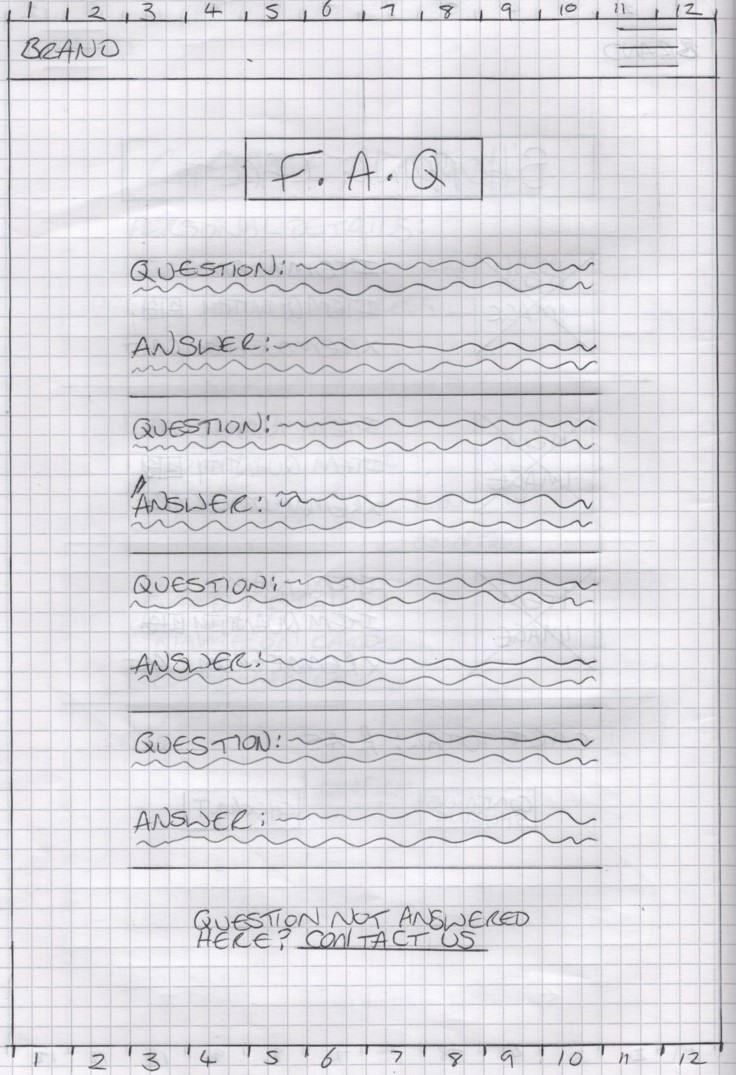 1 2 3 4 5 6 7 8 9 10 11 12
BRAND
F.A.Q
QUESTION:
ANSWER:
QUESTION:
ANSWER:
QUESTION:
ANSWER:
QUESTION:
ANSWER:
QUESTION NOT ANSWERED
HERE? CONTACT US
1 2 3 4 5 6 7 8 9 10 11 12